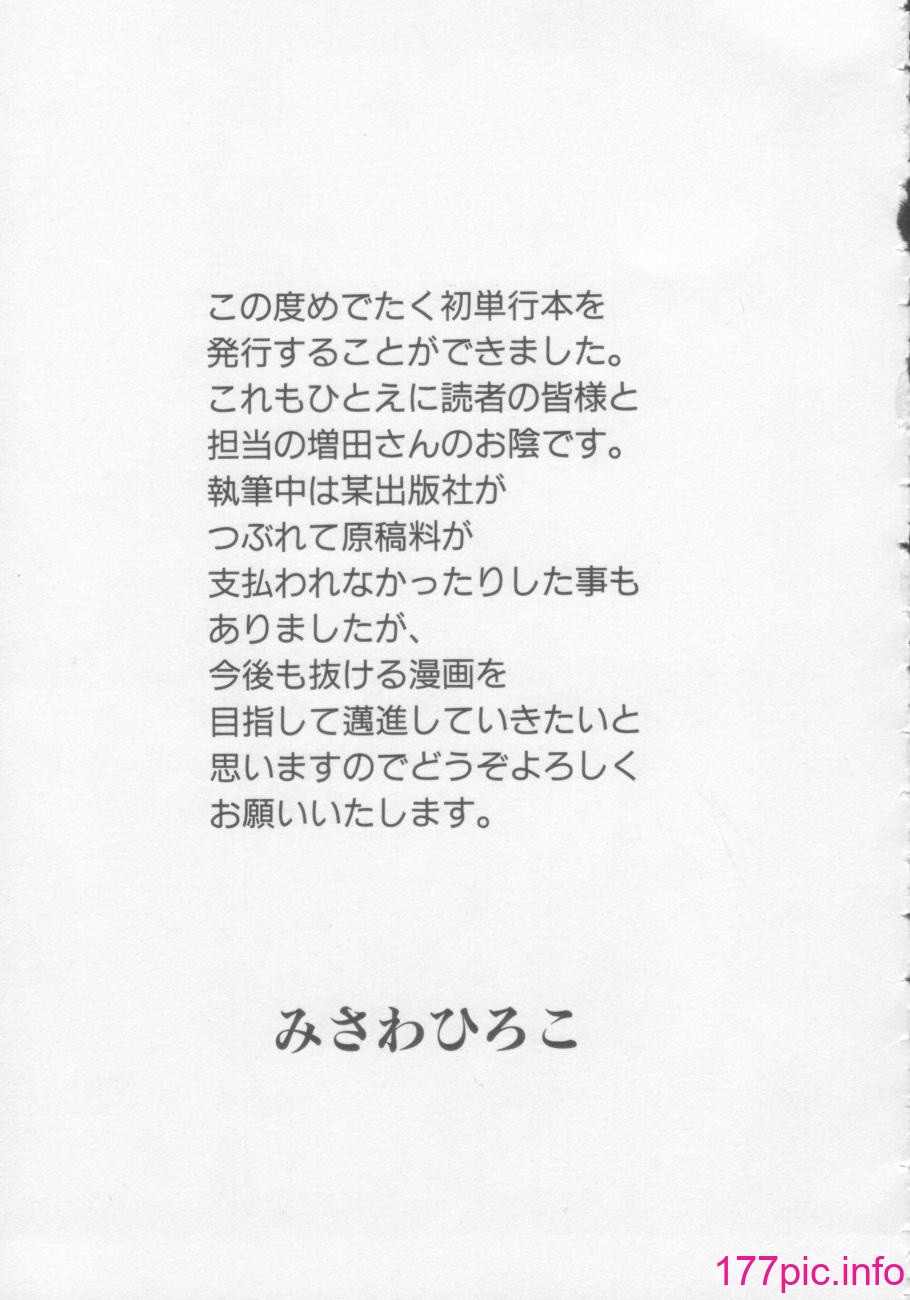 この度めでたく初単行本を
発行することができました。
これもひとえに読者の皆様と
担当の増田さんのお陰です。
執筆中は某出版社が
つぶれて原稿料が
支払われなかったりした事も
ありましたが、
今後も抜ける漫画を
目指して邁進していきたいと
思いますのでどうぞよろしく
お願いいたします。
みさわひろこ
177pic.info